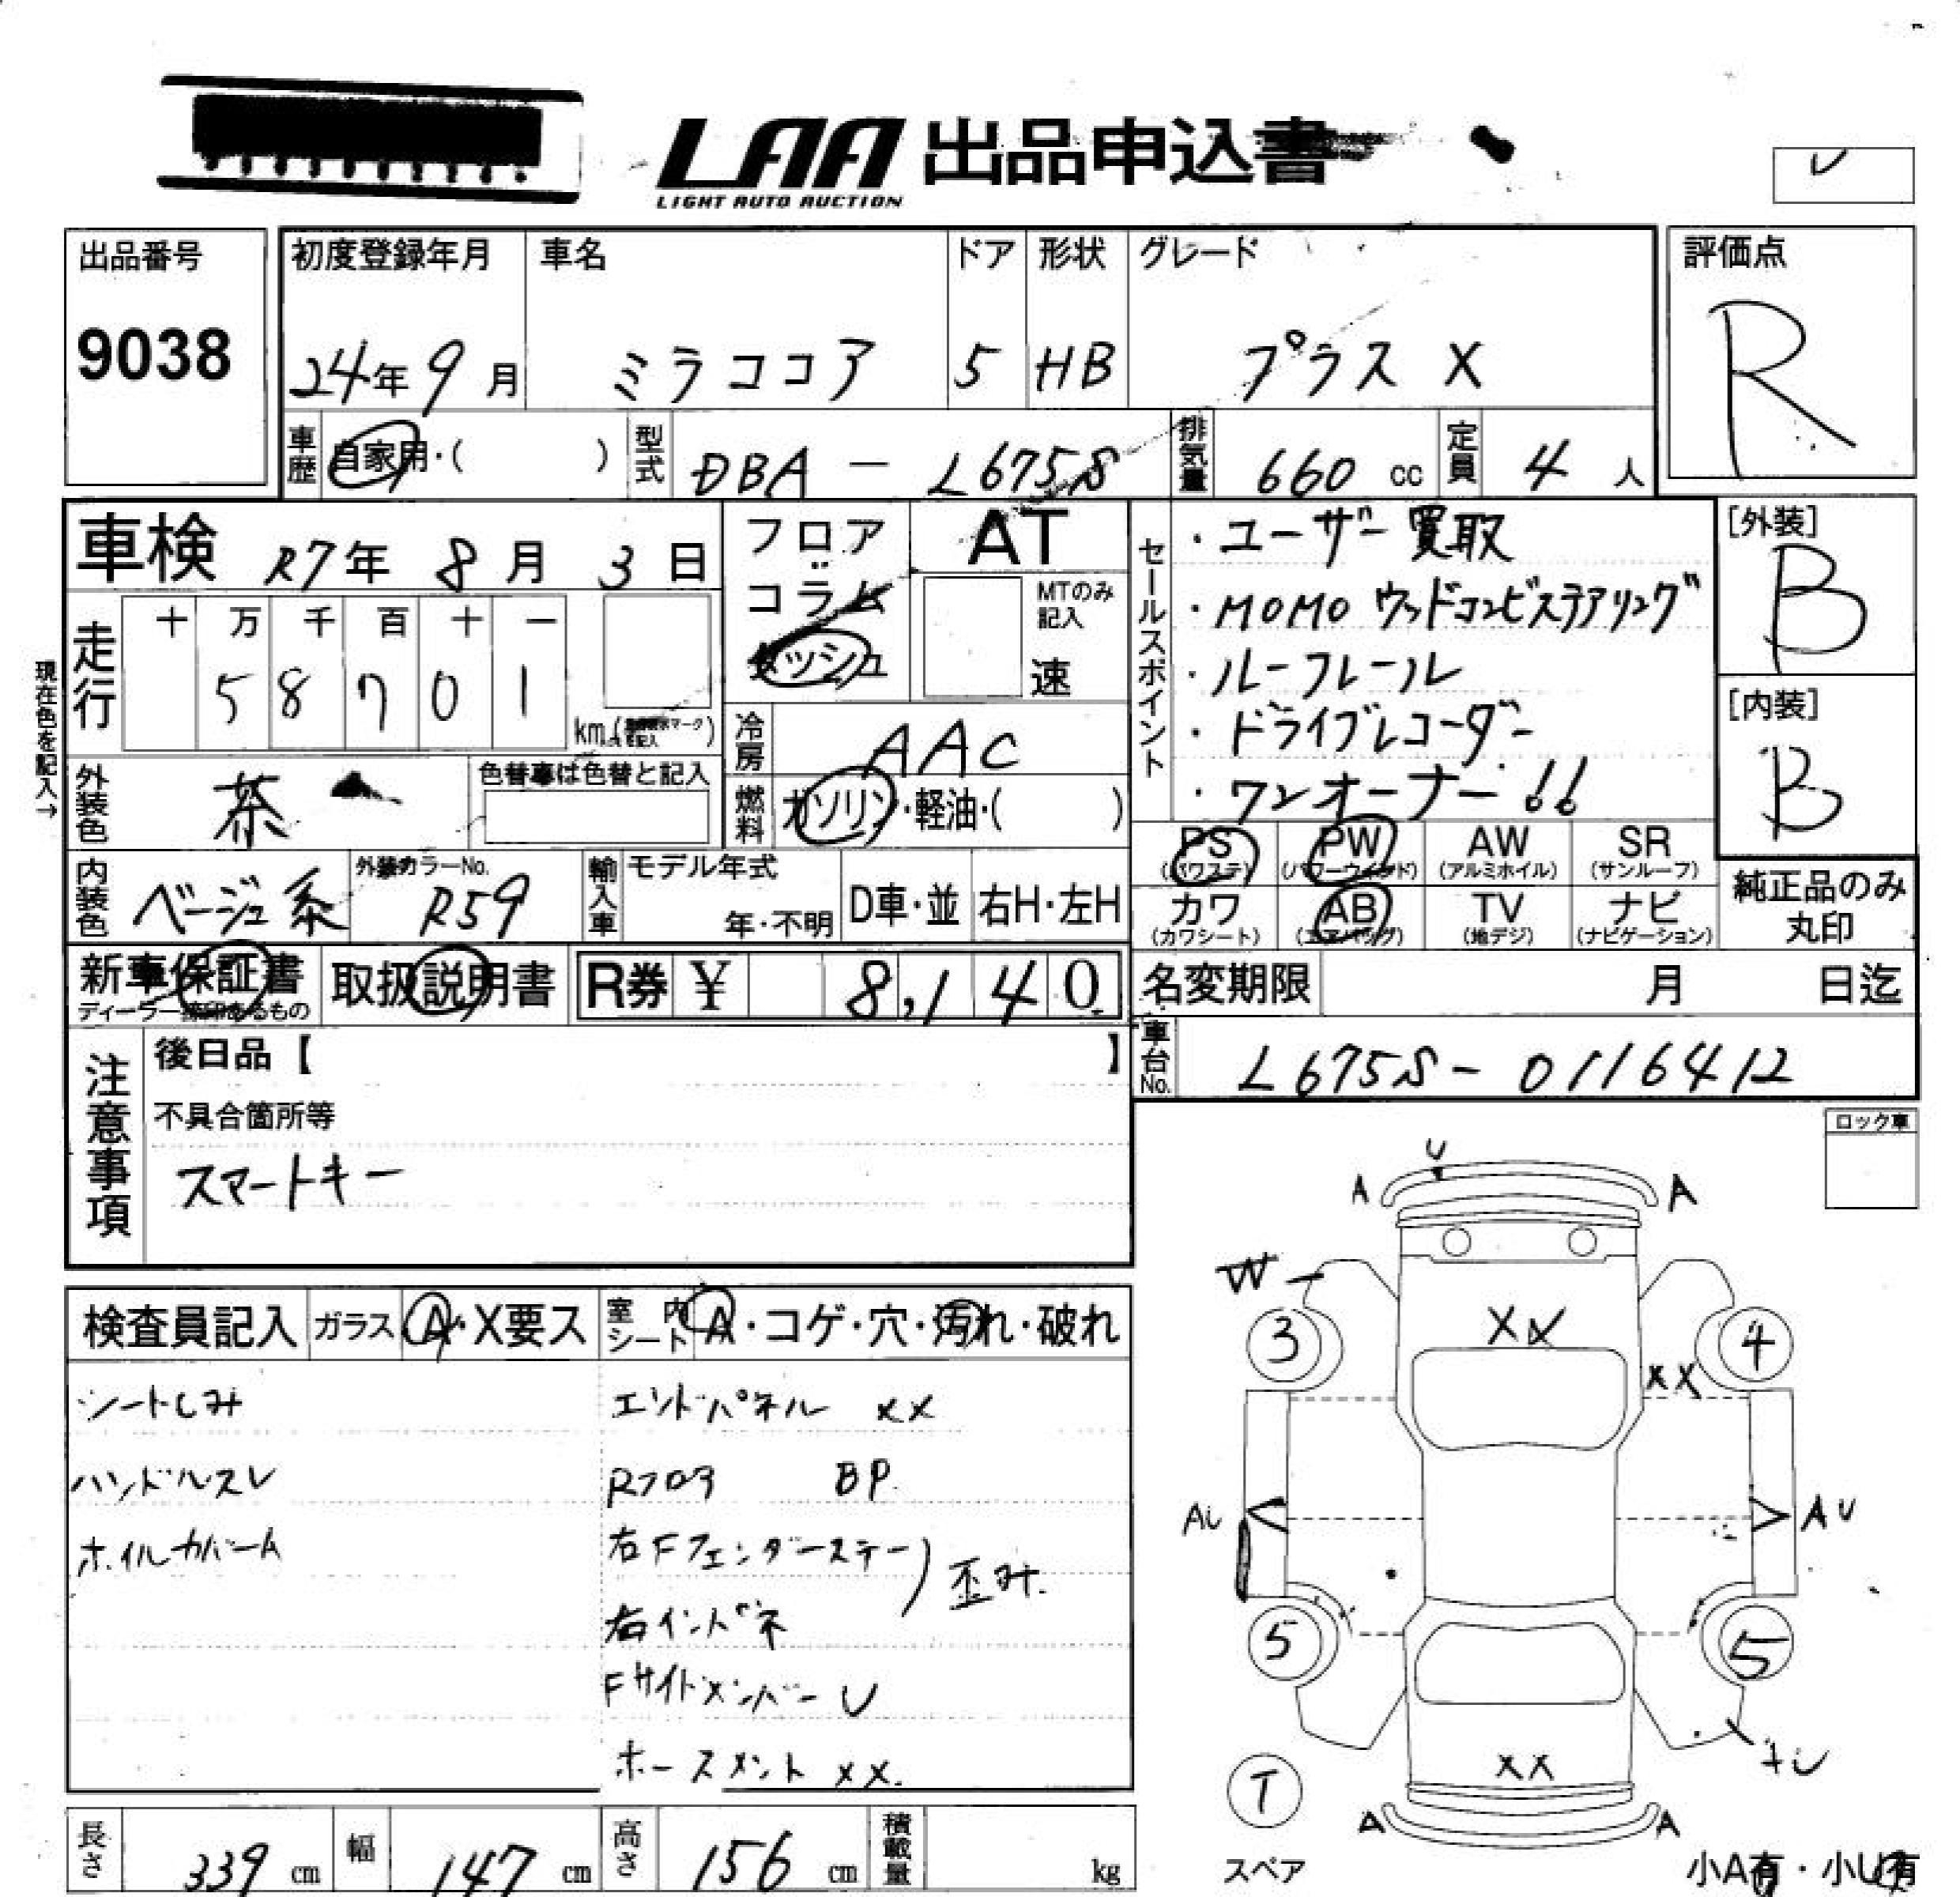 LAA 出品申込書
LIGHT AUTO AUCTION
出品番号
9038
初度登録年月
24年 9月
車名
ミラココア
ドア
5
形状
HB
グレード
プラス X
評価点
R
車歴
自家用・( )
型式
DBA - L675S
排気量
660 cc
定員
4 人
車検 R7年 8月 3日
フロア
コラム
ダッシュ
AT
MTのみ
記入
速
セールスポイント
・ユーザー買取
・MOMO ウッドコンビステアリング
・ルーフレール
・ドライブレコーダー
・ワンオーナー!!
[外装]
B
[内装]
B
現在色を記入→
走行
十 万 千 百 十 一
5 8 7 0 1
km
冷房
AAC
外装色
茶
色替車は色替と記入
燃料
ガソリン・軽油・( )
PS
(パワステ)
PW
(パワーウィンド)
AW
(アルミホイル)
SR
(サンルーフ)
内装色
ベージュ系
外装カラーNo.
R59
輸入車
モデル年式
年・不明
D車・並
右H・左H
カワ
(カワシート)
AB
(エアバッグ)
TV
(地デジ)
ナビ
(ナビゲーション)
純正品のみ
丸印
新車保証書
取扱説明書
R券 ¥ 8,140
名変期限 月 日迄
車台No.
L675S - 0116412
注意事項
後日品【 】
不具合箇所等
スマートキー
ロック車
検査員記入
ガラス
A・X要ス
室内シート
A・コゲ・穴・汚れ・破れ
シートしみ
ハンドルスレ
ホイルカバーA
エンドパネル XX
Rフロア BP
右Fフェンダーステー
右インパネ
歪み.
FサイドメンバーU
ホースメント XX.
U
A
A
W
3
4
XX
XX
AU
AU
5
5
XX
A
A
T
スペア
小A有・小U有
長さ
339 cm
幅
147 cm
高さ
156 cm
積載量
kg